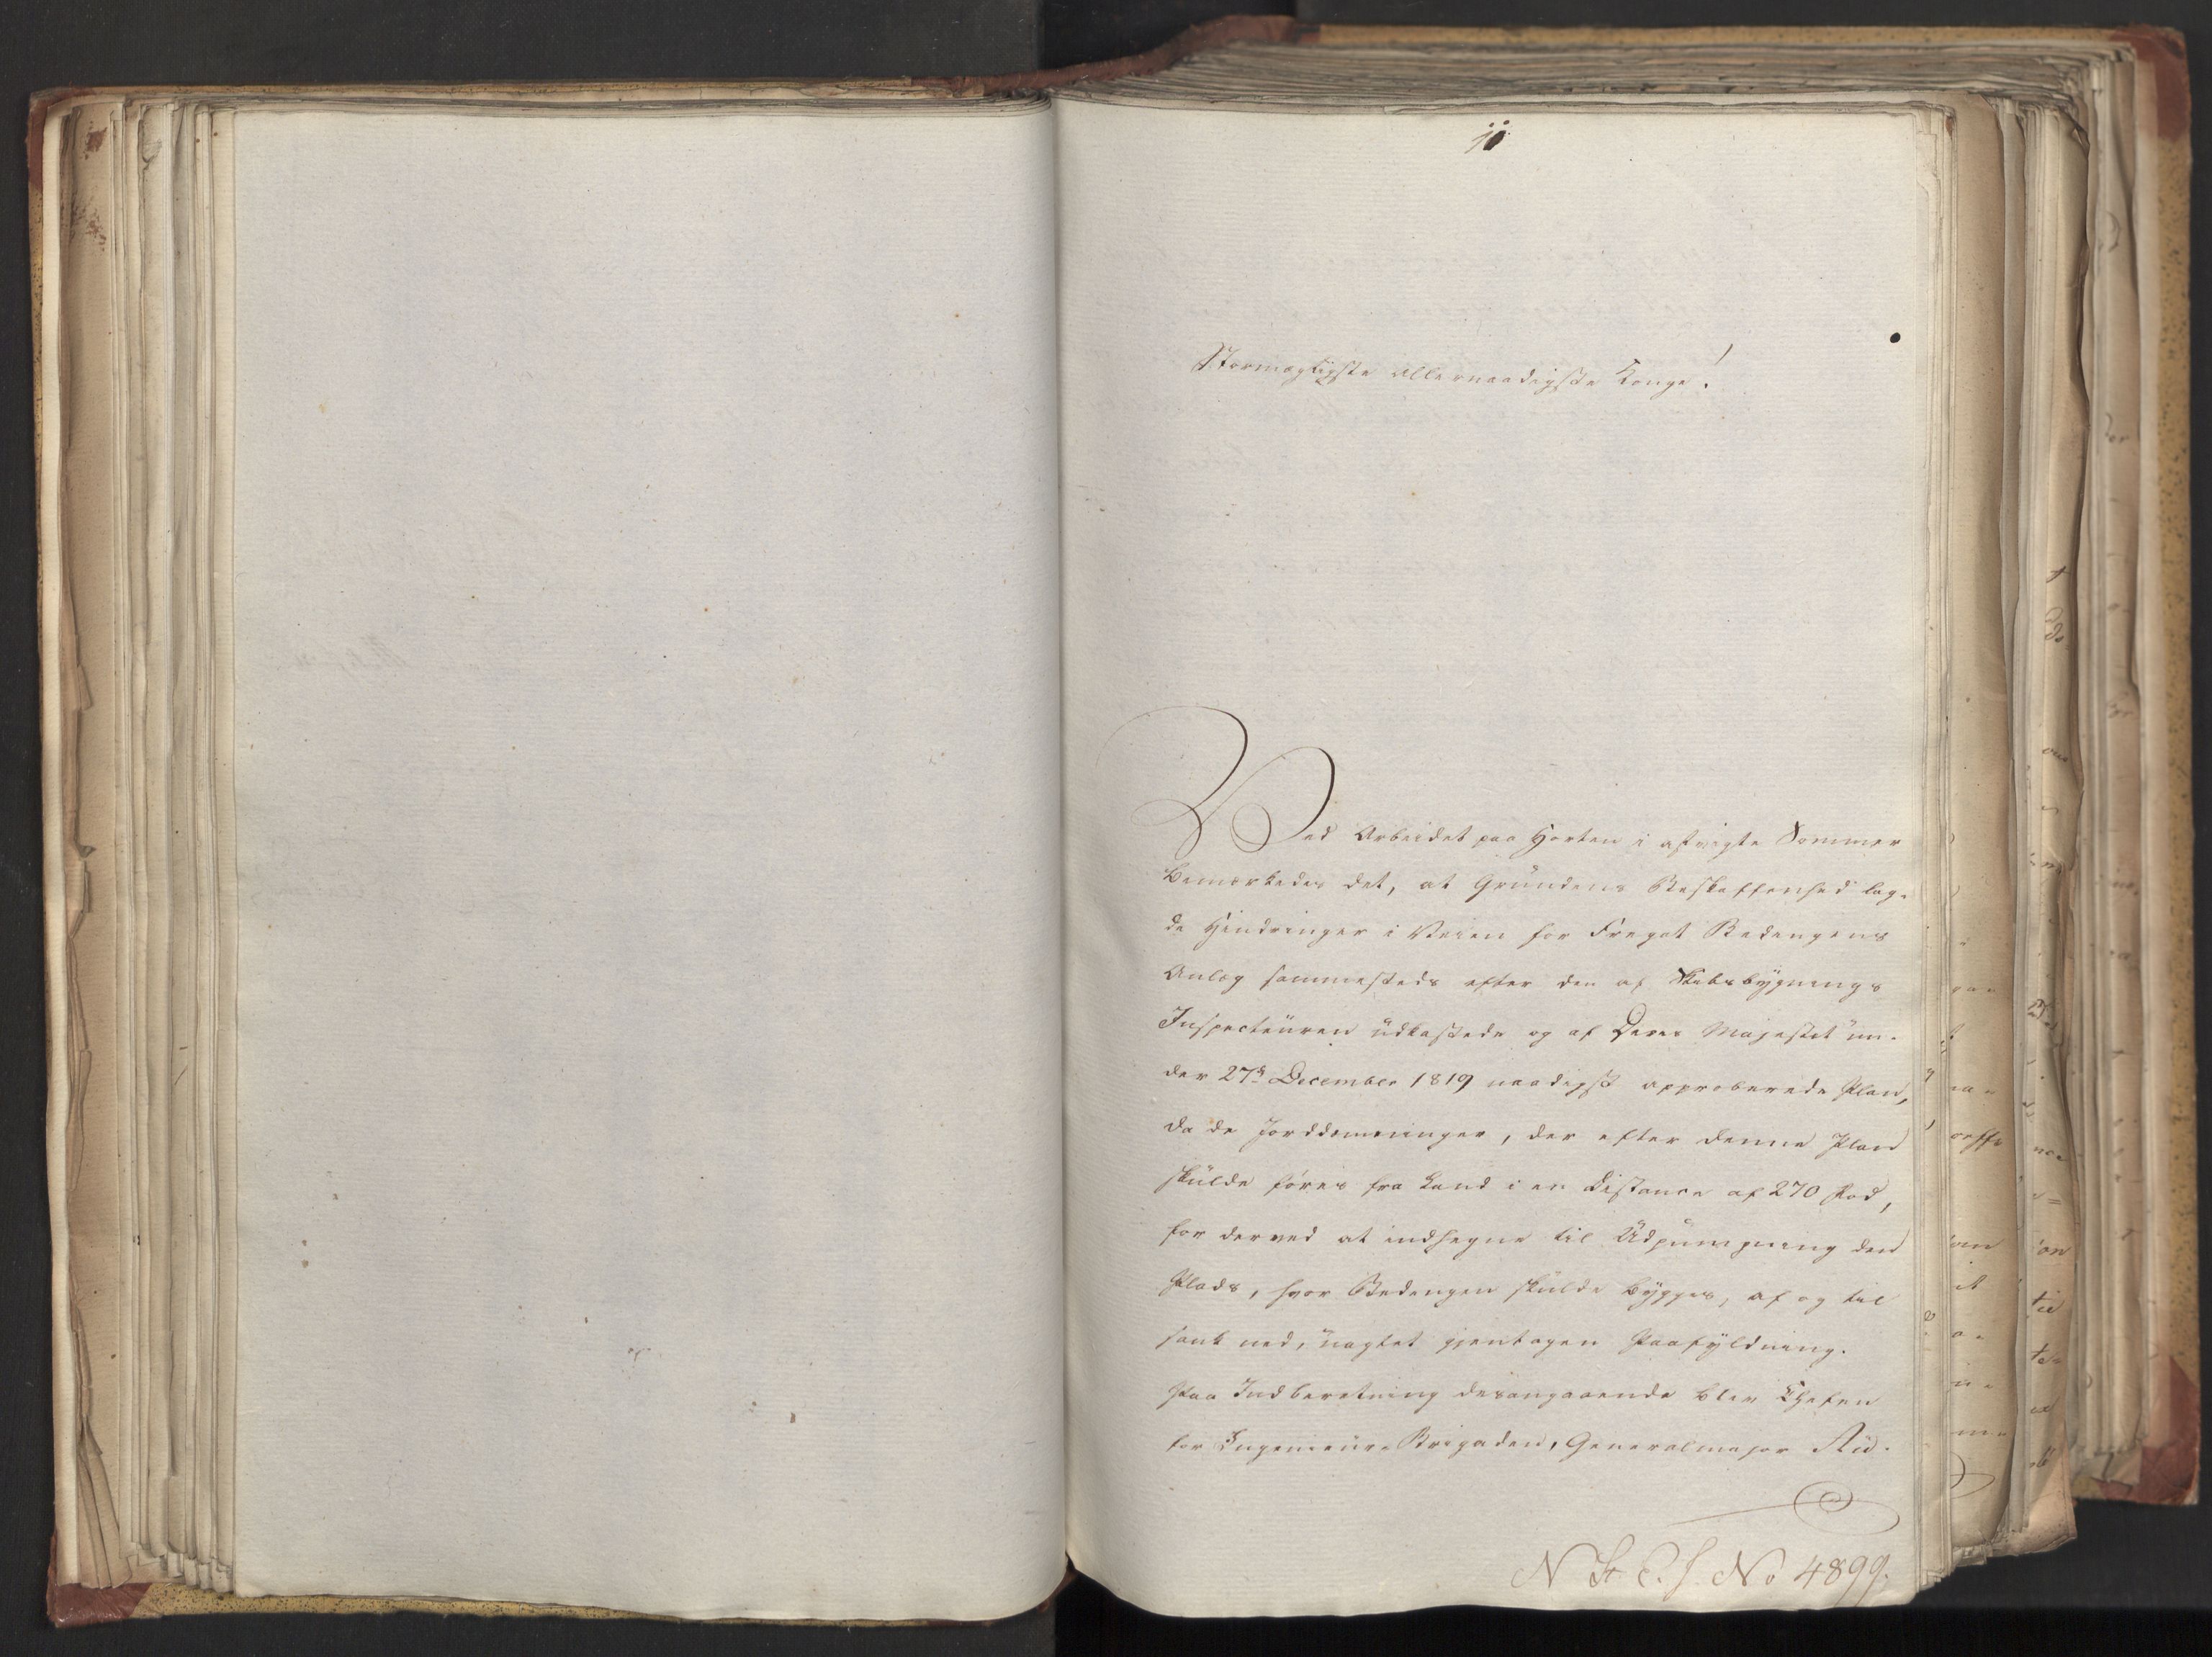 Stormægtigste Allernaadigste Konge!
Ved Arbeidet paa Horten i afvigte Sommer
bemærkedes det, at Grundens Beskaffenhed lag-
de Hindringer i Veien for Fregat Bedengens
Anlæg sammesteds efter den af Skibsbygnings
Inspecteuren udkastede og af Deres Majestæt un-
der 27de December 1819 naadigst approberede Plan,
da de Jorddæmninger, der efter denne Plan
skulde føres fra Land i en Distance af 270 Fod,
for derved at indhegne til Udpumpning den
Plads, hvor Bedengen skulde bygges, af og til
sank ned, uagtet gjentagen Paafyldning.
Paa Indberetning desangaaende blev Chefen
for Ingenieur-Brigaden, Generalmajor Au-
N St C. J. No 4899.